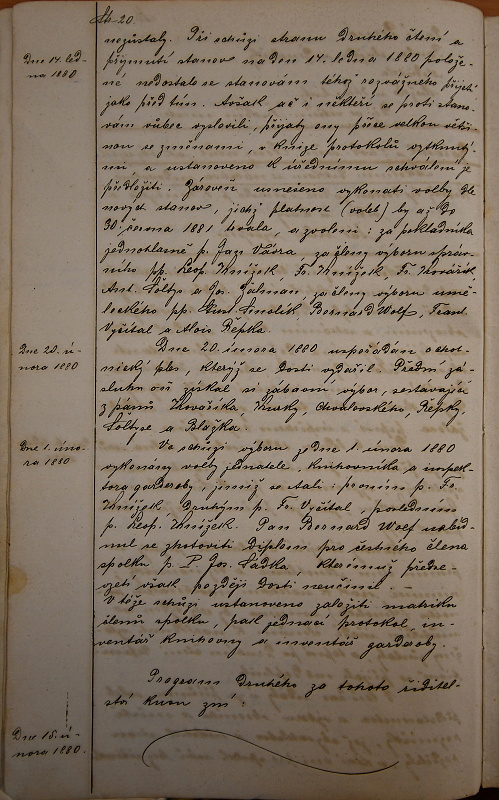 Str. 20.
nezůstaly. Při schůzi stranu druhého čtení a
Dne 14. led-
na 1880
přijmutí stanov na den 14. ledna 1880 polože-
né nedostalo se stanovám téhož rozvážného přijetí
jako před tím. Avšak ač i někteří se proti stano-
vám vůbec vyslovili, přijaty ony přece velkou větši-
nou se změnami, v knize protokolů vytknutý-
mi a ustanoveno k úřednímu schválení je
předložiti. Zároveň usneseno vykonati volby dle
nových stanov, jichž platnost (voleb) by až do
30. června 1881 trvala, a zvoleni: za pokladníka
jednohlasně p. Jan Vávra, za členy výboru správ-
ního pp. Leop. Knížek Fr. Knížek, Fr. Kovářík
Ant. Šoltys a Jos. Pálman, za členy výboru umě-
leckého pp. Smolík, Bernard Wolf, Frant.
Vyčítal a Alois Řepka.
Dne 20. ú-
nora 1880
Dne 20. února 1880 uspořádán ochot-
nický ples, kterýž se dosti vydařil. Přední zá-
sluhu oň získal si zábavní výbor, sestávající
z pánů Kovaříka, Kurky, Chvalovského, Řepky,
Šoltyse a Blažka.
Dne 1. úno-
ra 1880
Ve schůzi výboru ze dne 1. února 1880
vykonány volby jednatele, knihovníka a inspek-
tora garderoby, jimiž se stali: prvním p. Fr.
Knížek druhým p. Fr. Vyčítal, posledním
p. Leop. Knížek. Pan Bernard Wolf nabíd-
nul se zhotoviti diplom pro čestného člena
spolku p. P. Jos. Sádka, kterémuž předse-
vzetí však později dosti neučinil. –
V téže schůzi ustanoveno založiti matriku
členů spolku, pak jednací protokol, in-
ventář knihovny a inventář garderoby.
Program druhého za tohoto ředitel-
ství kusu zní:
Dne 15. ú-
nora 1880.